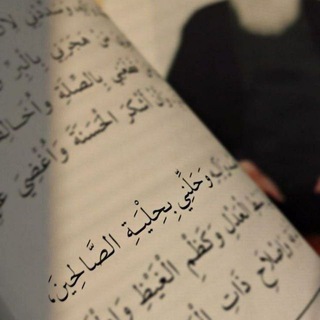 مَنْ هَجَرَنِي بِالْبِرِّ
قَطَعَنِي بِالصِّلَةِ وَأُخَالِفَ
أَشْكُرَ الْحَسَنَةَ وَأُغْضِيَ عَنِ
وَحَلِّنِي بِحِلْيَةِ الصَّالِحِينَ،
الْعَدْلِ وَكَظْمِ الْغَيْظِ
وَإِصْلَاحِ ذَاتِ